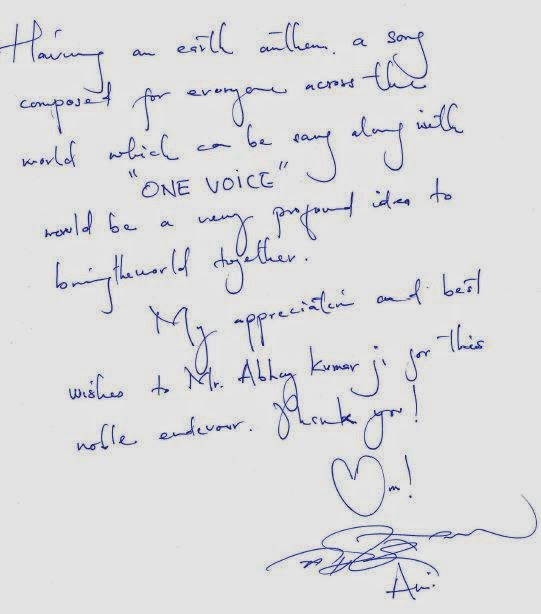 Having an earth anthem, a song
composed for everyone across the
world which can be sang along with
"ONE VOICE"
would be a very profound idea to
bring the world together.
My appreciation and best
wishes to Mr. Abhay Kumar ji for this
noble endevour. Thank you!
Om!
Ani